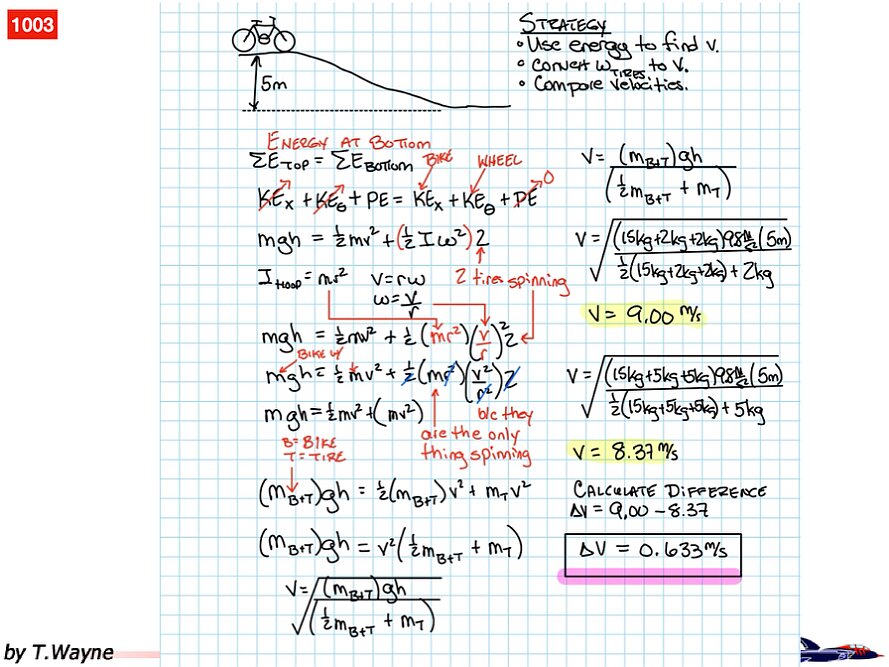 1003
5m
STRATEGY
• Use energy to find v.
• convert ω_TIRES to v.
• Compare velocities.
ENERGY AT BOTTOM
ΣE_TOP = ΣE_BOTTOM BIKE WHEEL
KE_x + KE_θ + PE = KE_x + KE_θ + PE 0
mgh = ½mv² + (½Iω²)2
I_HOOP = mr² v=rω 2 tires spinning
ω=v/r
mgh = ½mv² + ½(mr²)(v/r)²2
BIKE w/
mgh = ½mv² + ½(mr²)(v²/r²)2
mgh = ½mv² + (mv²) b/c they
are the only
thing spinning
B=BIKE
T=TIRE
(m_B+T)gh = ½(m_B+T)v² + m_Tv²
(m_B+T)gh = v²(½m_B+T + m_T)
v=√((m_B+T)gh/(½m_B+T + m_T))
v= (m_B+T)gh/(½m_B+T + m_T)
v=√((15kg+2kg+2kg)9.8N/kg(5m)/½(15kg+2kg+2kg)+2kg)
v = 9.00 m/s
v=√((15kg+5kg+5kg)9.8N/kg(5m)/½(15kg+5kg+5kg)+5kg)
v = 8.37 m/s
CALCULATE DIFFERENCE
Δv = 9.00 - 8.37
Δv = 0.633 m/s
by T.Wayne